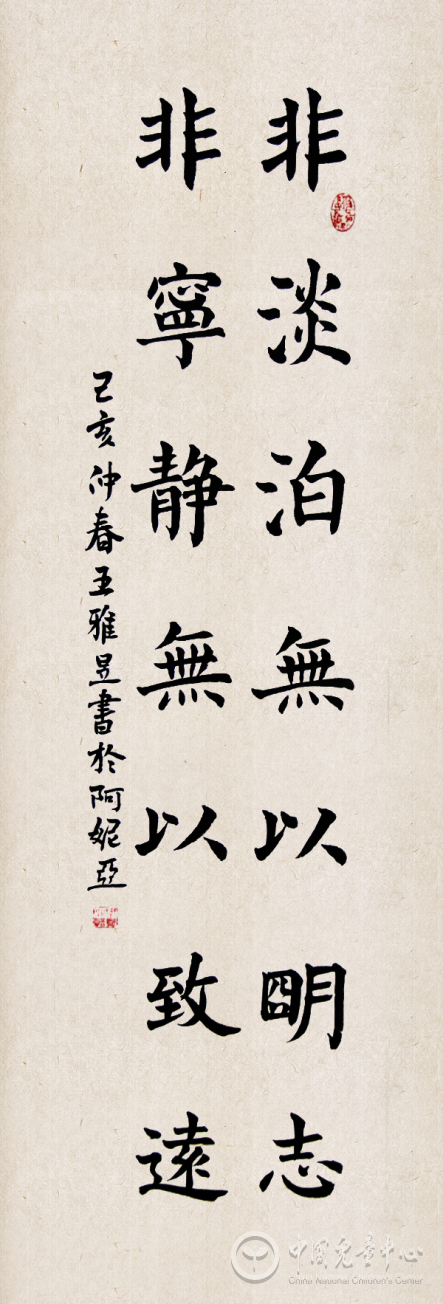 非淡泊無以明志
非寧静無以致遠
己亥仲春王雅昱書於阿妮亞
中国儿童中心
China National Children's Center